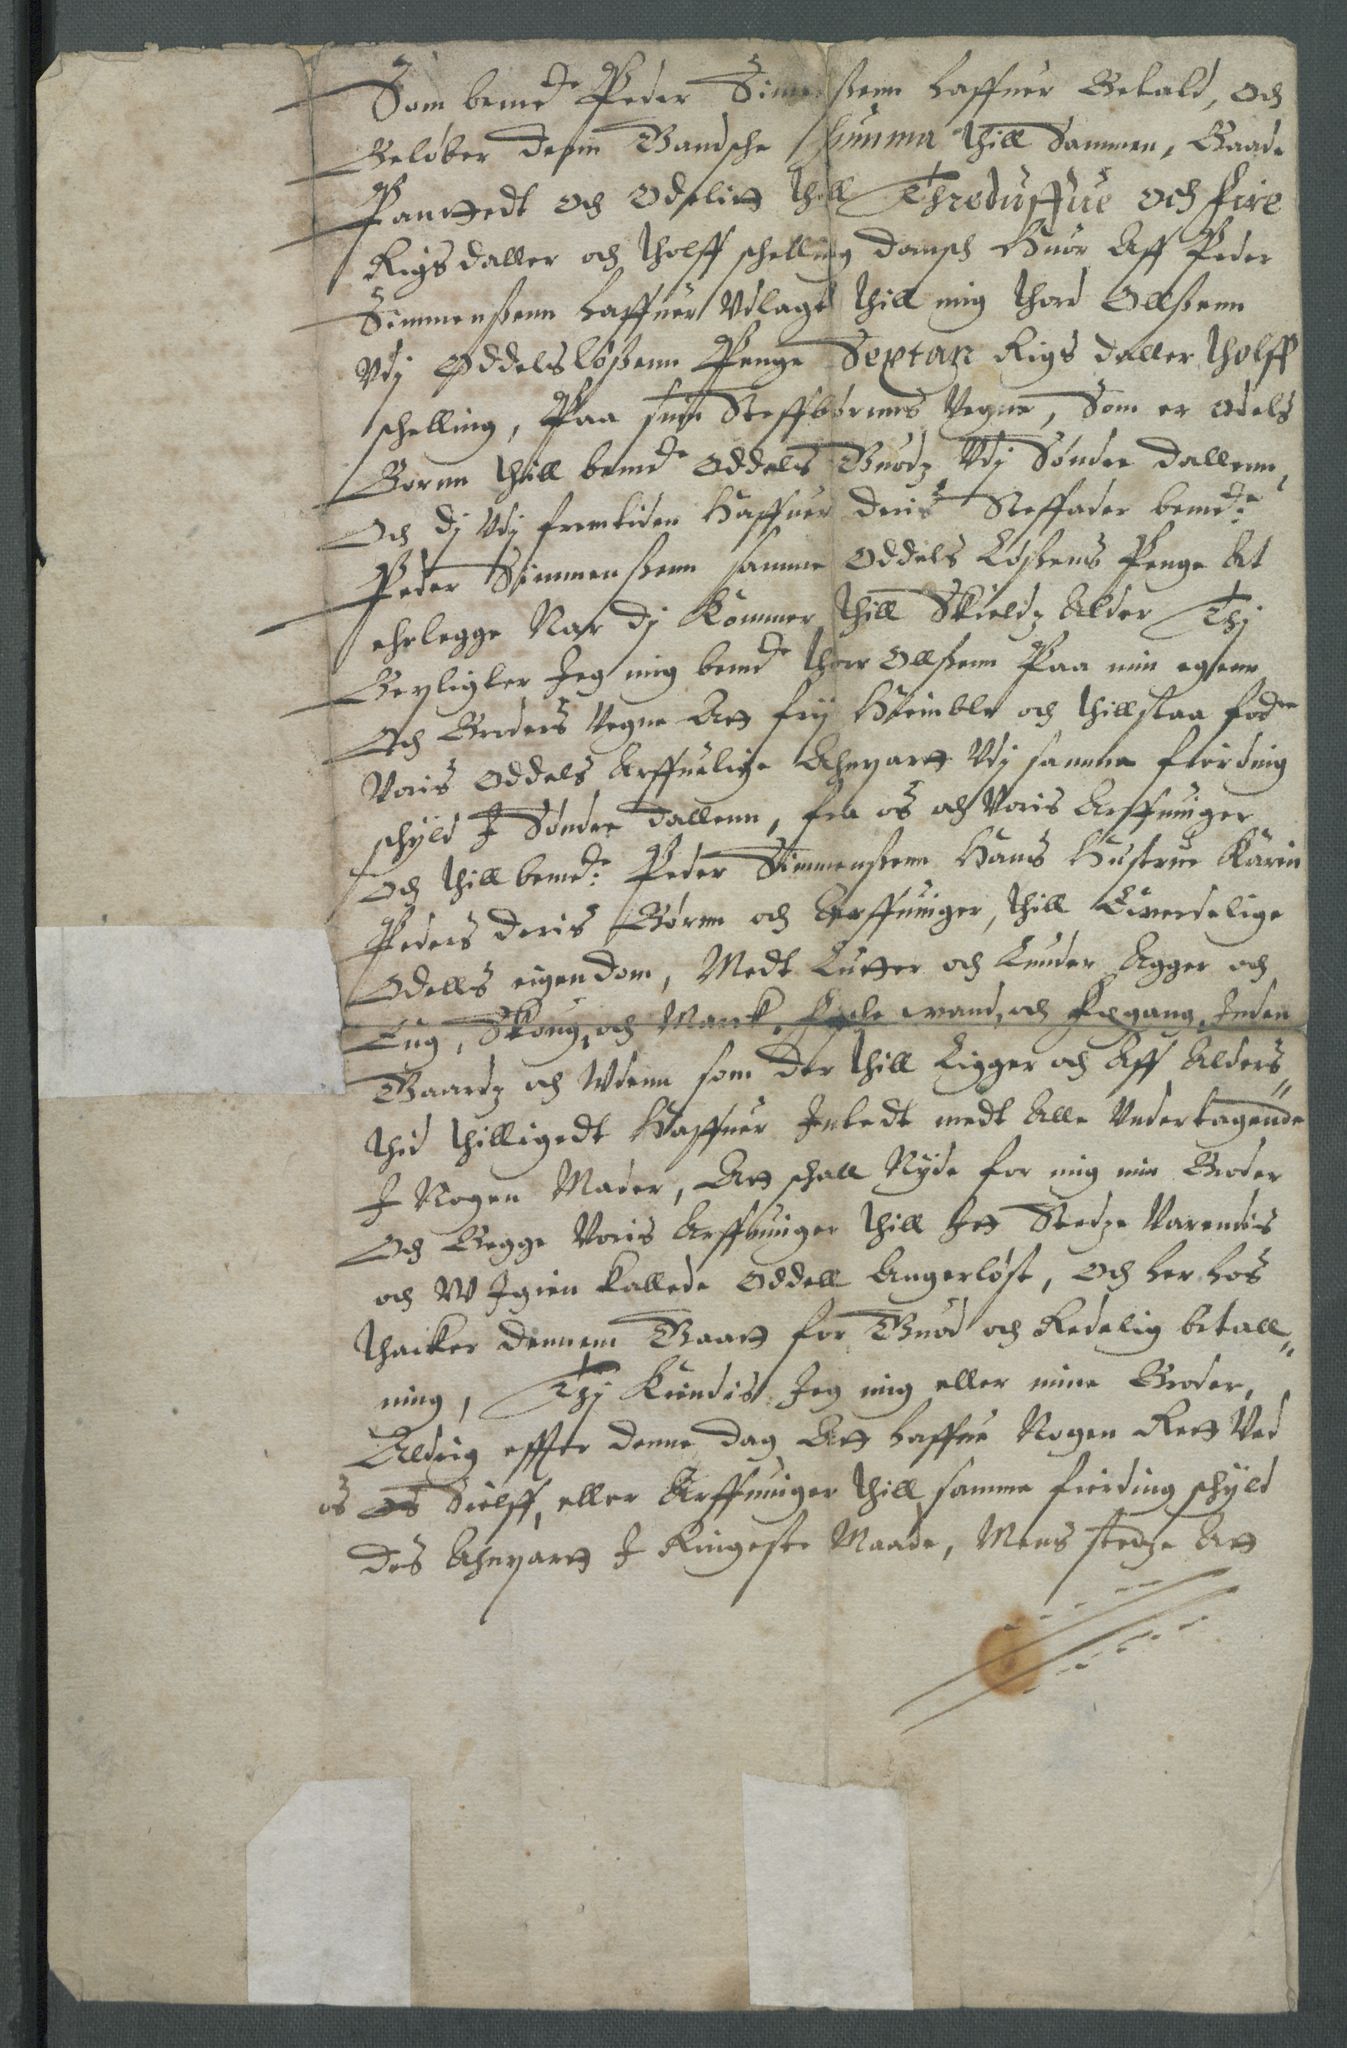 Som bemd:te Peder Simenßenn haffuer Betald, och
Beløber denn Gandsche Summa thill Sammen, Baade
Panttedt och Odelitt thill Thredusfue och fire
Rigsdaller och tholff schelling dansch huor Aff Peder
Simmenßenn haffuer Vdlagt thill mig thord Ollßenn
Vdj Oddelsløßenn Penge Sextan Rigs daller tholff
schelling, Paa sine Steffbørnns Vegne, Som er Odels
Bornn thill bemd:te Oddels Guodz Vdj Søndre dallenn,
Och dj Vdj fremtiden haffuer deris Steffader bemd:te
Peder Simmenßenn samme Oddels Løßens Penge At
erlegge Nar dj Kommer thill Skieldz Alder Thj
Bepligter Jeg mig bemd:te thord Ollßenn Paa min egenn
Och Broders Vegne Att frij Hiemble och thillstaa for:ne
Voris Oddels Arffuelige Anpart Vdj samme fierding
schyld J Søndre dallenn, fra os och Voris Arffuinger
Och thill bemd:te Peder Simmenßenn Hans Hustrue Karin
Peders deris Børnn och Arffuinger, thill Euerdelige
Odells eigendom, Medt Lutter och Lunder Agger och
Eng, Skoug och Marck, fische vand, och fægang, Inden
Gaardz och Wdenn som der thill Ligger och Aff Alders„
thid thilligedt Haffuer Intedt medt Alle Vndertagende
J Nogen Mader, Att schall Nyde for mig min Broder
Och Begge Voris Arffuinger thill Itt Stedze Varendis
och W Igien kallede Oddell Angerløst, och her hos
thacker dennem Baatt for Guod och Redelig betall„
ning, Thj Kiendis Jeg mig eller mine Broder,
Aldrig effter denne dag Att haffue Nogen Rett Ved
os Sielff, eller Arffuinger thill samme fierding schyld
des Anpart J Ringeste Maade, Mens stedze Att